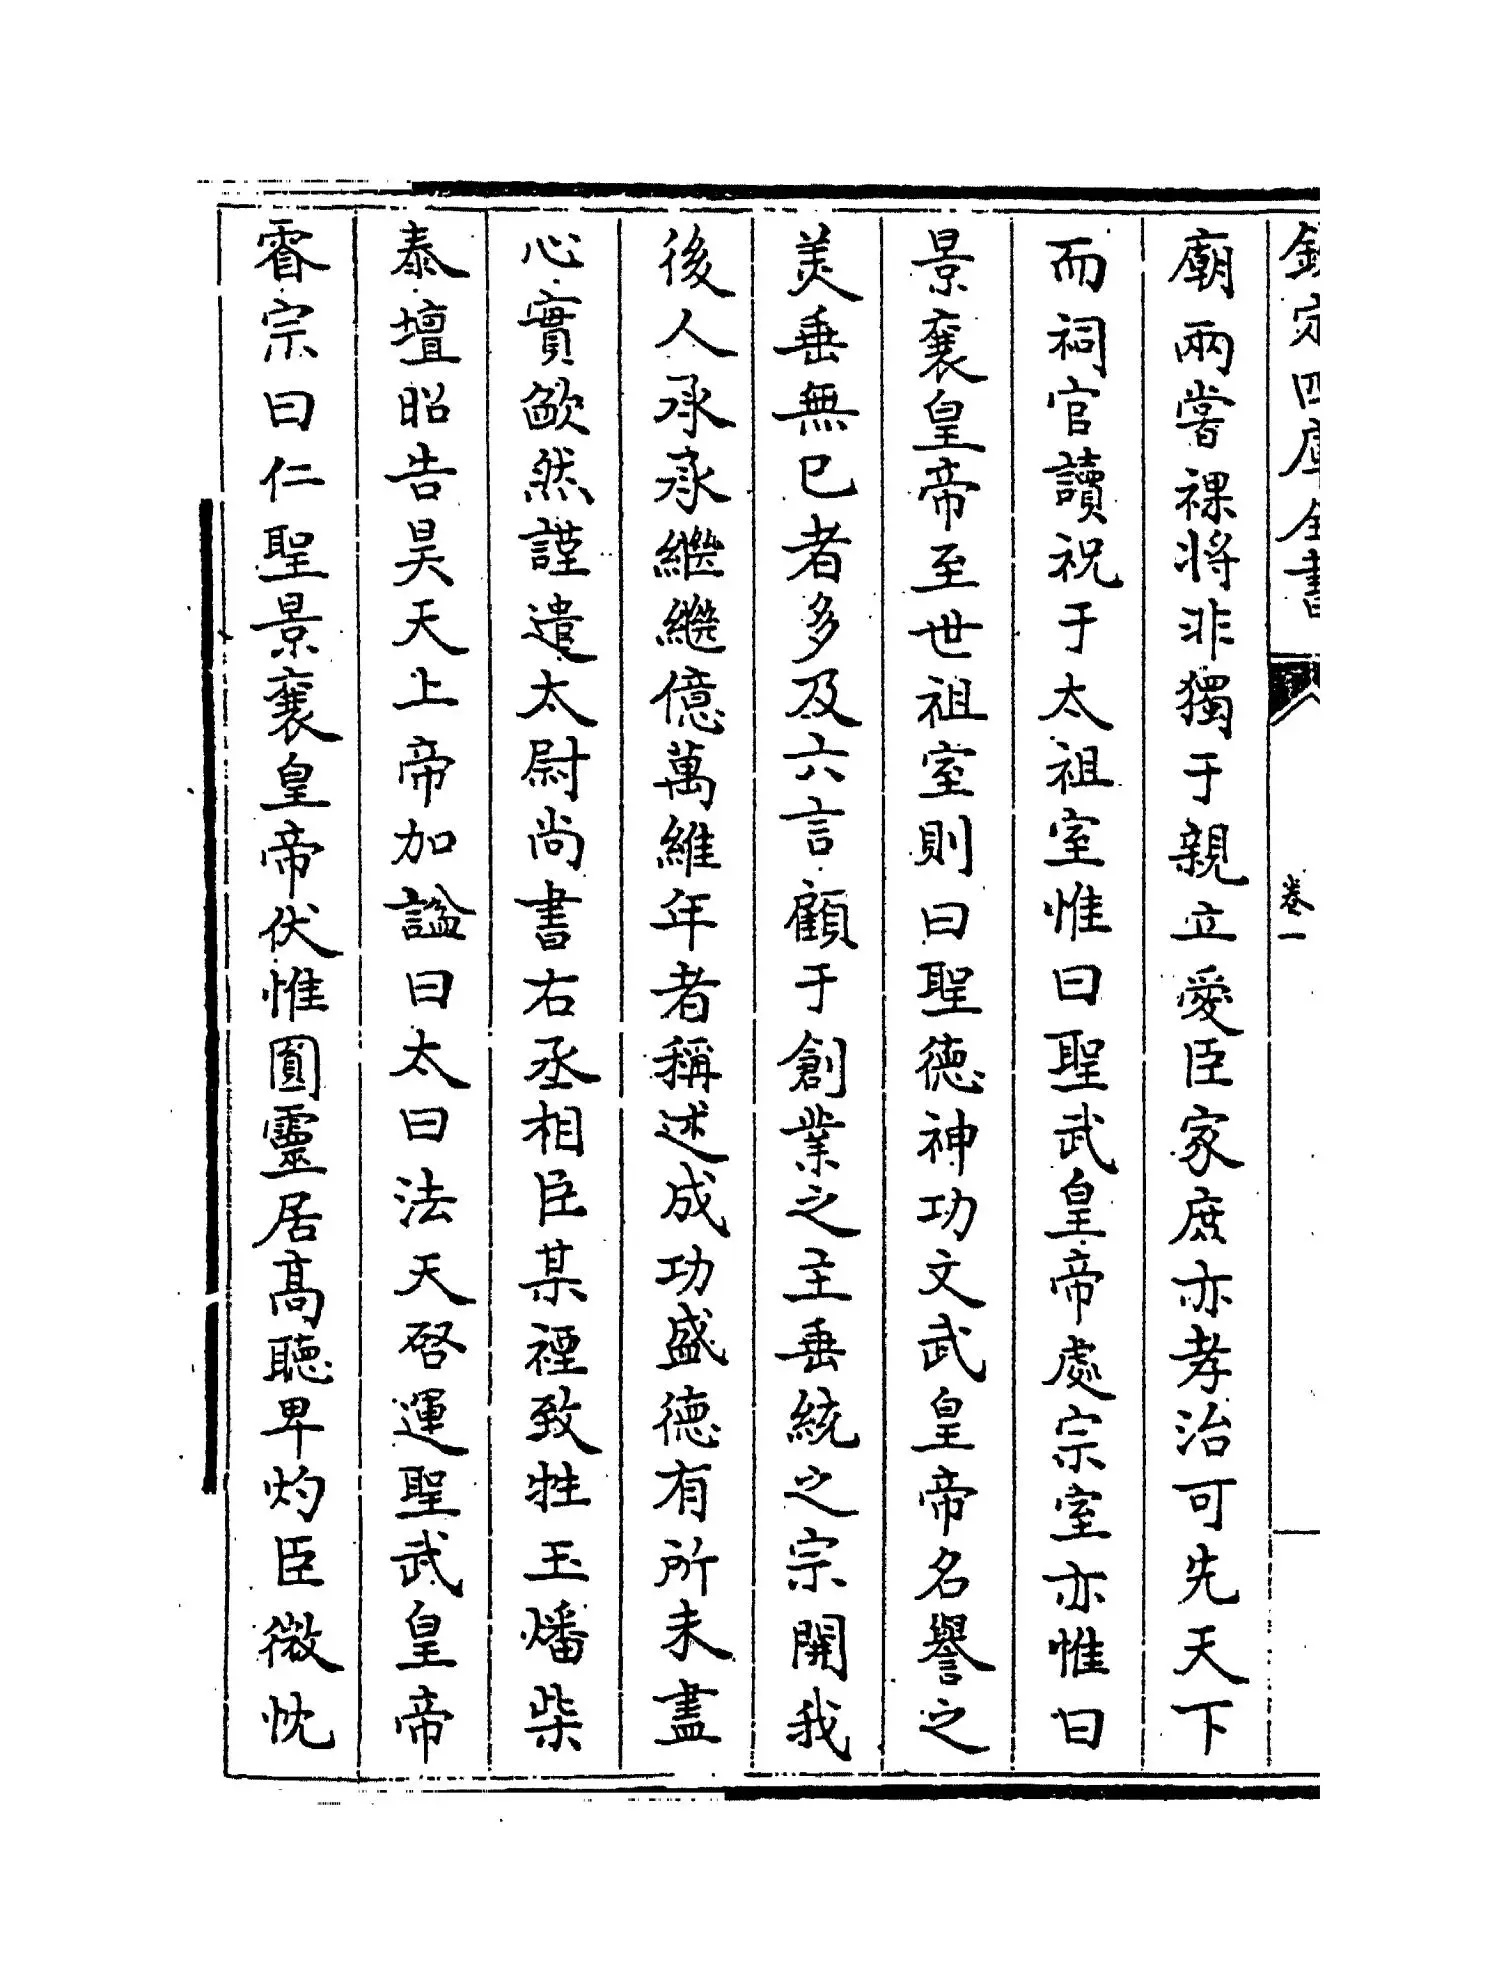 欽定四庫全書
卷一
廟兩嘗祼將非獨于親立愛臣家庶亦孝治可先天下
而祠官讀祝于太祖室惟曰聖武皇帝處宗室亦惟曰
景襄皇帝至世祖室則曰聖德神功文武皇帝名譽之
美垂無已者多及六言顧于創業之主垂統之宗開我
後人承承繼繼億萬維年者稱述成功盛德有所未盡
心實歉然謹遣太尉尚書右丞相臣某禋致牲玉燔柴
泰壇昭告昊天上帝加諡曰太曰法天啓運聖武皇帝
睿宗曰仁聖景襄皇帝伏惟圓靈居高聽卑灼臣微忱